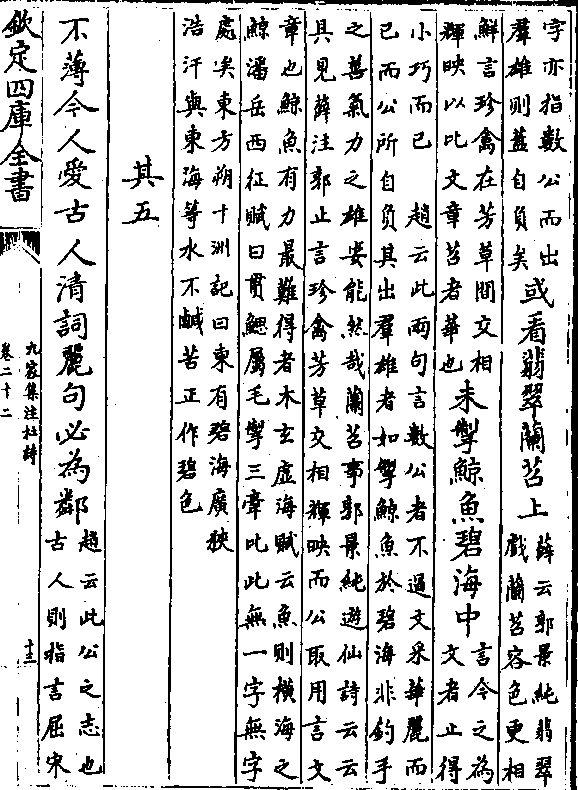 字亦指數公而出
羣雄則蓋自負矣
或看翡翠蘭苕上
薛云郭景純翡翠
戲蘭苕容色更相
鮮言珍禽在芳草間交相
輝映以比文章苕者華也
未掣鯨魚碧海中
言今之為
文者止得
小巧而已　趙云此兩句言數公者不過文采華麗而
已而公所自負其出羣雄者如掣鯨魚於碧海非釣手
之善氣力之雄安能然哉蘭苕事郭景純遊仙詩云云
具見薛注郭止言珍禽芳草交相輝映而公取用言文
章也鯨魚有力最難得者木玄虛海賦云魚則橫海之
鯨潘岳西征賦曰貫鰓屬毛掣三章比此無一字無字
處矣東方朔十洲記曰東有碧海廣狹
浩汗與東海等水不鹹苦正作碧色
其五
不薄今人愛古人清詞麗句必為鄰
趙云此公之志也
古人則指言屈宋
欽定四庫全書
九家集注杜詩
卷二十二
十三